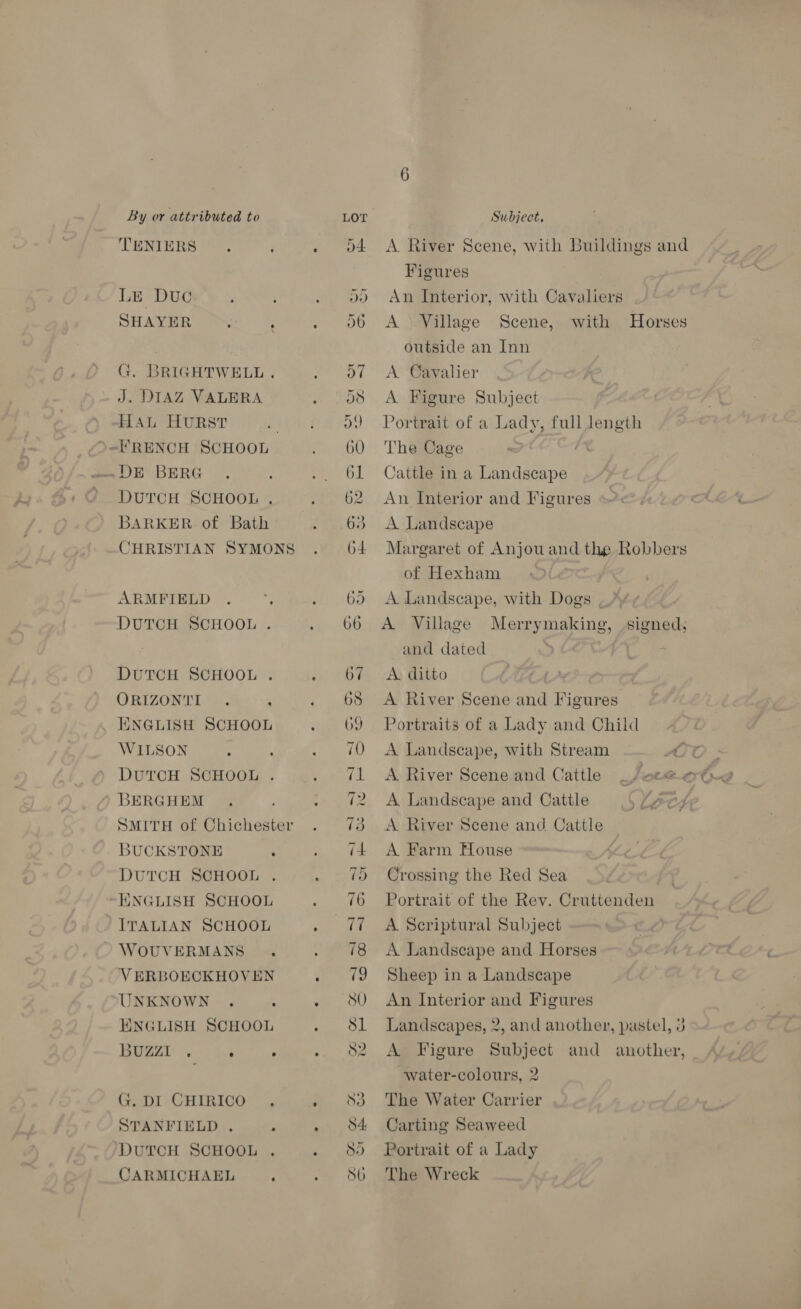 6
By or attributed to LOT Subject.
TENIERS . . . 54 A River Scene, with Buildings and
Figures
LE DUC . . . 55 An Interior, with Cavaliers
SHAYER . . . 56 A Village Scene, with Horses
outside an Inn
G. BRIGHTWELL . . 57 A Cavalier
J. DIAZ VALERA . 58 A Figure Subject
HAL HURST . . 59 Portrait of a Lady, full length
FRENCH SCHOOL . 60 The Cage
DE BERG . . . 61 Cattle in a Landscape
DUTCH SCHOOL . . 62 An Interior and Figures
BARKER of Bath . 63 A Landscape
CHRISTIAN SYMONS . 64 Margaret of Anjou and the Robbers
of Hexham
ARMFIELD . . . 65 A Landscape, with Dogs
DUTCH SCHOOL . . 66 A Village Merrymaking, signed,
and dated
DUTCH SCHOOL . . 67 A ditto
ORIZONTI . . . 68 A River Scene and Figures
ENGLISH SCHOOL . 69 Portraits of a Lady and Child
WILSON . . . 70 A Landscape, with Stream
DUTCH SCHOOL . . 71 A River Scene and Cattle
BERGHEM . . . 72 A Landscape and Cattle
SMITH of Chichester . 73 A River Scene and Cattle
BUCKSTONE . . 74 A Farm House
DUTCH SCHOOL . . 75 Crossing the Red Sea
ENGLISH SCHOOL . 76 Portrait of the Rev. Cruttenden
ITALIAN SCHOOL . 77 A Scriptural Subject
WOUVERMANS . . 78 A Landscape and Horses
VERBOECKHOVEN . 79 Sheep in a Landscape
UNKNOWN . . . 80 An Interior and Figures
ENGLISH SCHOOL . 81 Landscapes, 2, and another, pastel, 3
BUZZI . . . . 82 A Figure Subject and another,
water-colours, 2
G. DI CHIRICO . . 83 The Water Carrier
STANFIELD . . . 84 Carting Seaweed
DUTCH SCHOOL . . 85 Portrait of a Lady
CARMICHAEL . . 86 The Wreck